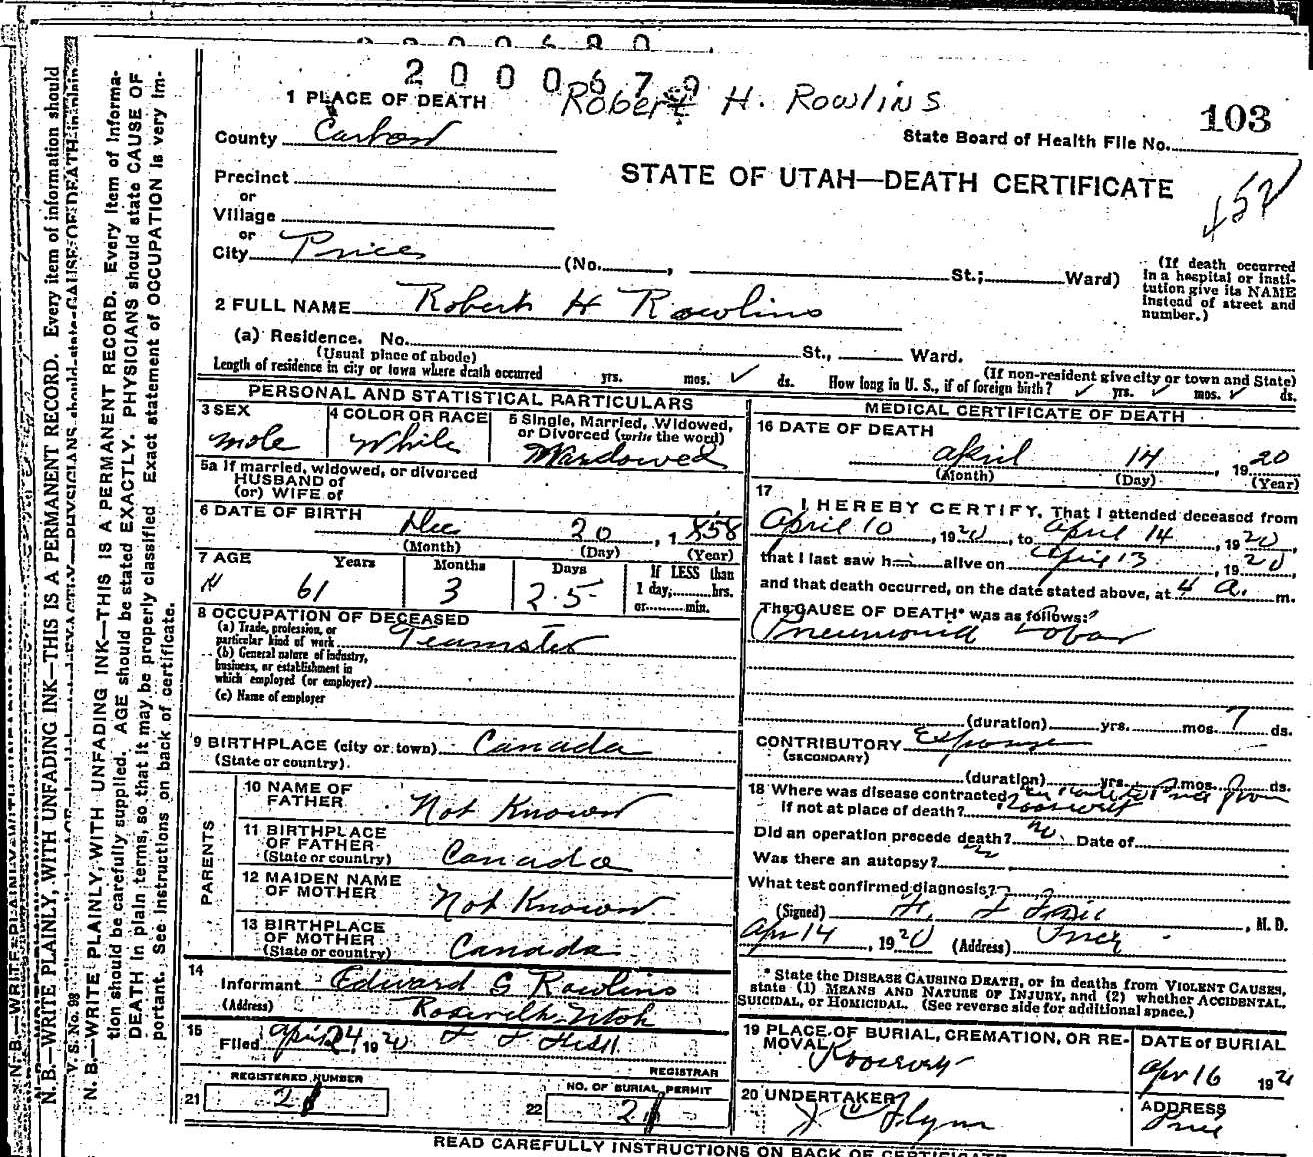 2 0 0 0 6 7 9
Robert H. Rowlins
1 PLACE OF DEATH
103
County Carbon
State Board of Health File No.
Precinct
STATE OF UTAH—DEATH CERTIFICATE
or
Village
or
City Price (No. , St.; Ward)
(If death occurred
in a hospital or insti-
tution give its NAME
instead of street and
number.)
2 FULL NAME Robert H Rowlins
(a) Residence. No. St., Ward.
(Usual place of abode)
(If non-resident give city or town and State)
Length of residence in city or town where death occurred yrs. mos. ds. How long in U. S., if of foreign birth? yrs. mos. ds.
PERSONAL AND STATISTICAL PARTICULARS
3 SEX
male
4 COLOR OR RACE
White
5 Single, Married, Widowed,
or Divorced (write the word)
5a If married, widowed, or divorced
HUSBAND of
(or) WIFE of
6 DATE OF BIRTH
Dec 20, 1858
(Month) (Day) (Year)
7 AGE Years Months Days
61 3 25
If LESS than
1 day, hrs.
or min.
8 OCCUPATION OF DECEASED
(a) Trade, profession, or
particular kind of work Teamster
(b) General nature of industry,
business, or establishment in
which employed (or employer)
(c) Name of employer
9 BIRTHPLACE (city or town) Canada
(State or country).
PARENTS
10 NAME OF
FATHER Not Known
11 BIRTHPLACE
OF FATHER
(State or country) Canada
12 MAIDEN NAME
OF MOTHER Not Known
13 BIRTHPLACE
OF MOTHER
(State or country) Canada
14
Informant Edward S Rowlins
(Address)
15
Filed April 24 1920
REGISTRAR
REGISTERED NUMBER
21
NO. OF BURIAL PERMIT
22
MEDICAL CERTIFICATE OF DEATH
16 DATE OF DEATH
April 14, 1920
(Month) (Day) (Year)
17
I HEREBY CERTIFY, That I attended deceased from
April 10, 1920, to April 14, 1920,
that I last saw h alive on April 13, 1920,
and that death occurred, on the date stated above, at 4 a. m.
The CAUSE OF DEATH* was as follows:
Pneumonia Lobar
(duration) yrs. mos. 7 ds.
CONTRIBUTORY Exposure
(SECONDARY)
(duration) yrs. mos. ds.
18 Where was disease contracted en route to Price from
if not at place of death? Roosevelt
Did an operation precede death? no Date of
Was there an autopsy? no
What test confirmed diagnosis?
(Signed) , M. D.
Apr 14, 1920 (Address) Price
* State the DISEASE CAUSING DEATH, or in deaths from VIOLENT CAUSES,
state (1) MEANS AND NATURE OF INJURY, and (2) whether ACCIDENTAL,
SUICIDAL, or HOMICIDAL. (See reverse side for additional space.)
19 PLACE OF BURIAL, CREMATION, OR RE-
MOVAL Roosevelt
DATE OF BURIAL
Apr 16 192
20 UNDERTAKER
J Flynn
ADDRESS
Price
READ CAREFULLY INSTRUCTIONS ON BACK OF CERTIFICATE
N. B.—WRITE PLAINLY, WITH UNFADING INK—THIS IS A PERMANENT RECORD. Every item of information should
V. S. No. 98
N. B.—WRITE PLAINLY, WITH UNFADING INK—THIS IS A PERMANENT RECORD. Every item of informa-
tion should be carefully supplied. AGE should be stated EXACTLY. PHYSICIANS should state CAUSE OF
DEATH in plain terms, so that it may be properly classified. Exact statement of OCCUPATION is very im-
portant. See instructions on back of certificate.